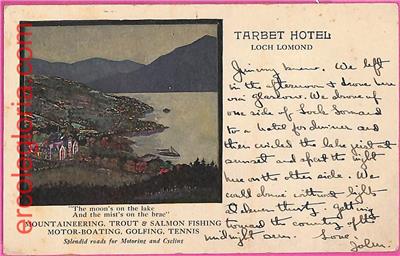 TARBET HOTEL
LOCH LOMOND
We left
in the afternoon & drove here
via Glasgow. We drove up
one side of Loch Lomond
to a hotel for dinner and
then circled the lake just at
sunset and spent the night
here on the other side. We
could drive without lights
toward the country of the
midnight sun. Love.
John.
"The moon's on the lake
And the mist's on the brae"
MOUNTAINEERING, TROUT & SALMON FISHING
MOTOR-BOATING, GOLFING, TENNIS
Splendid roads for Motoring and Cycling
ercolegloria.com